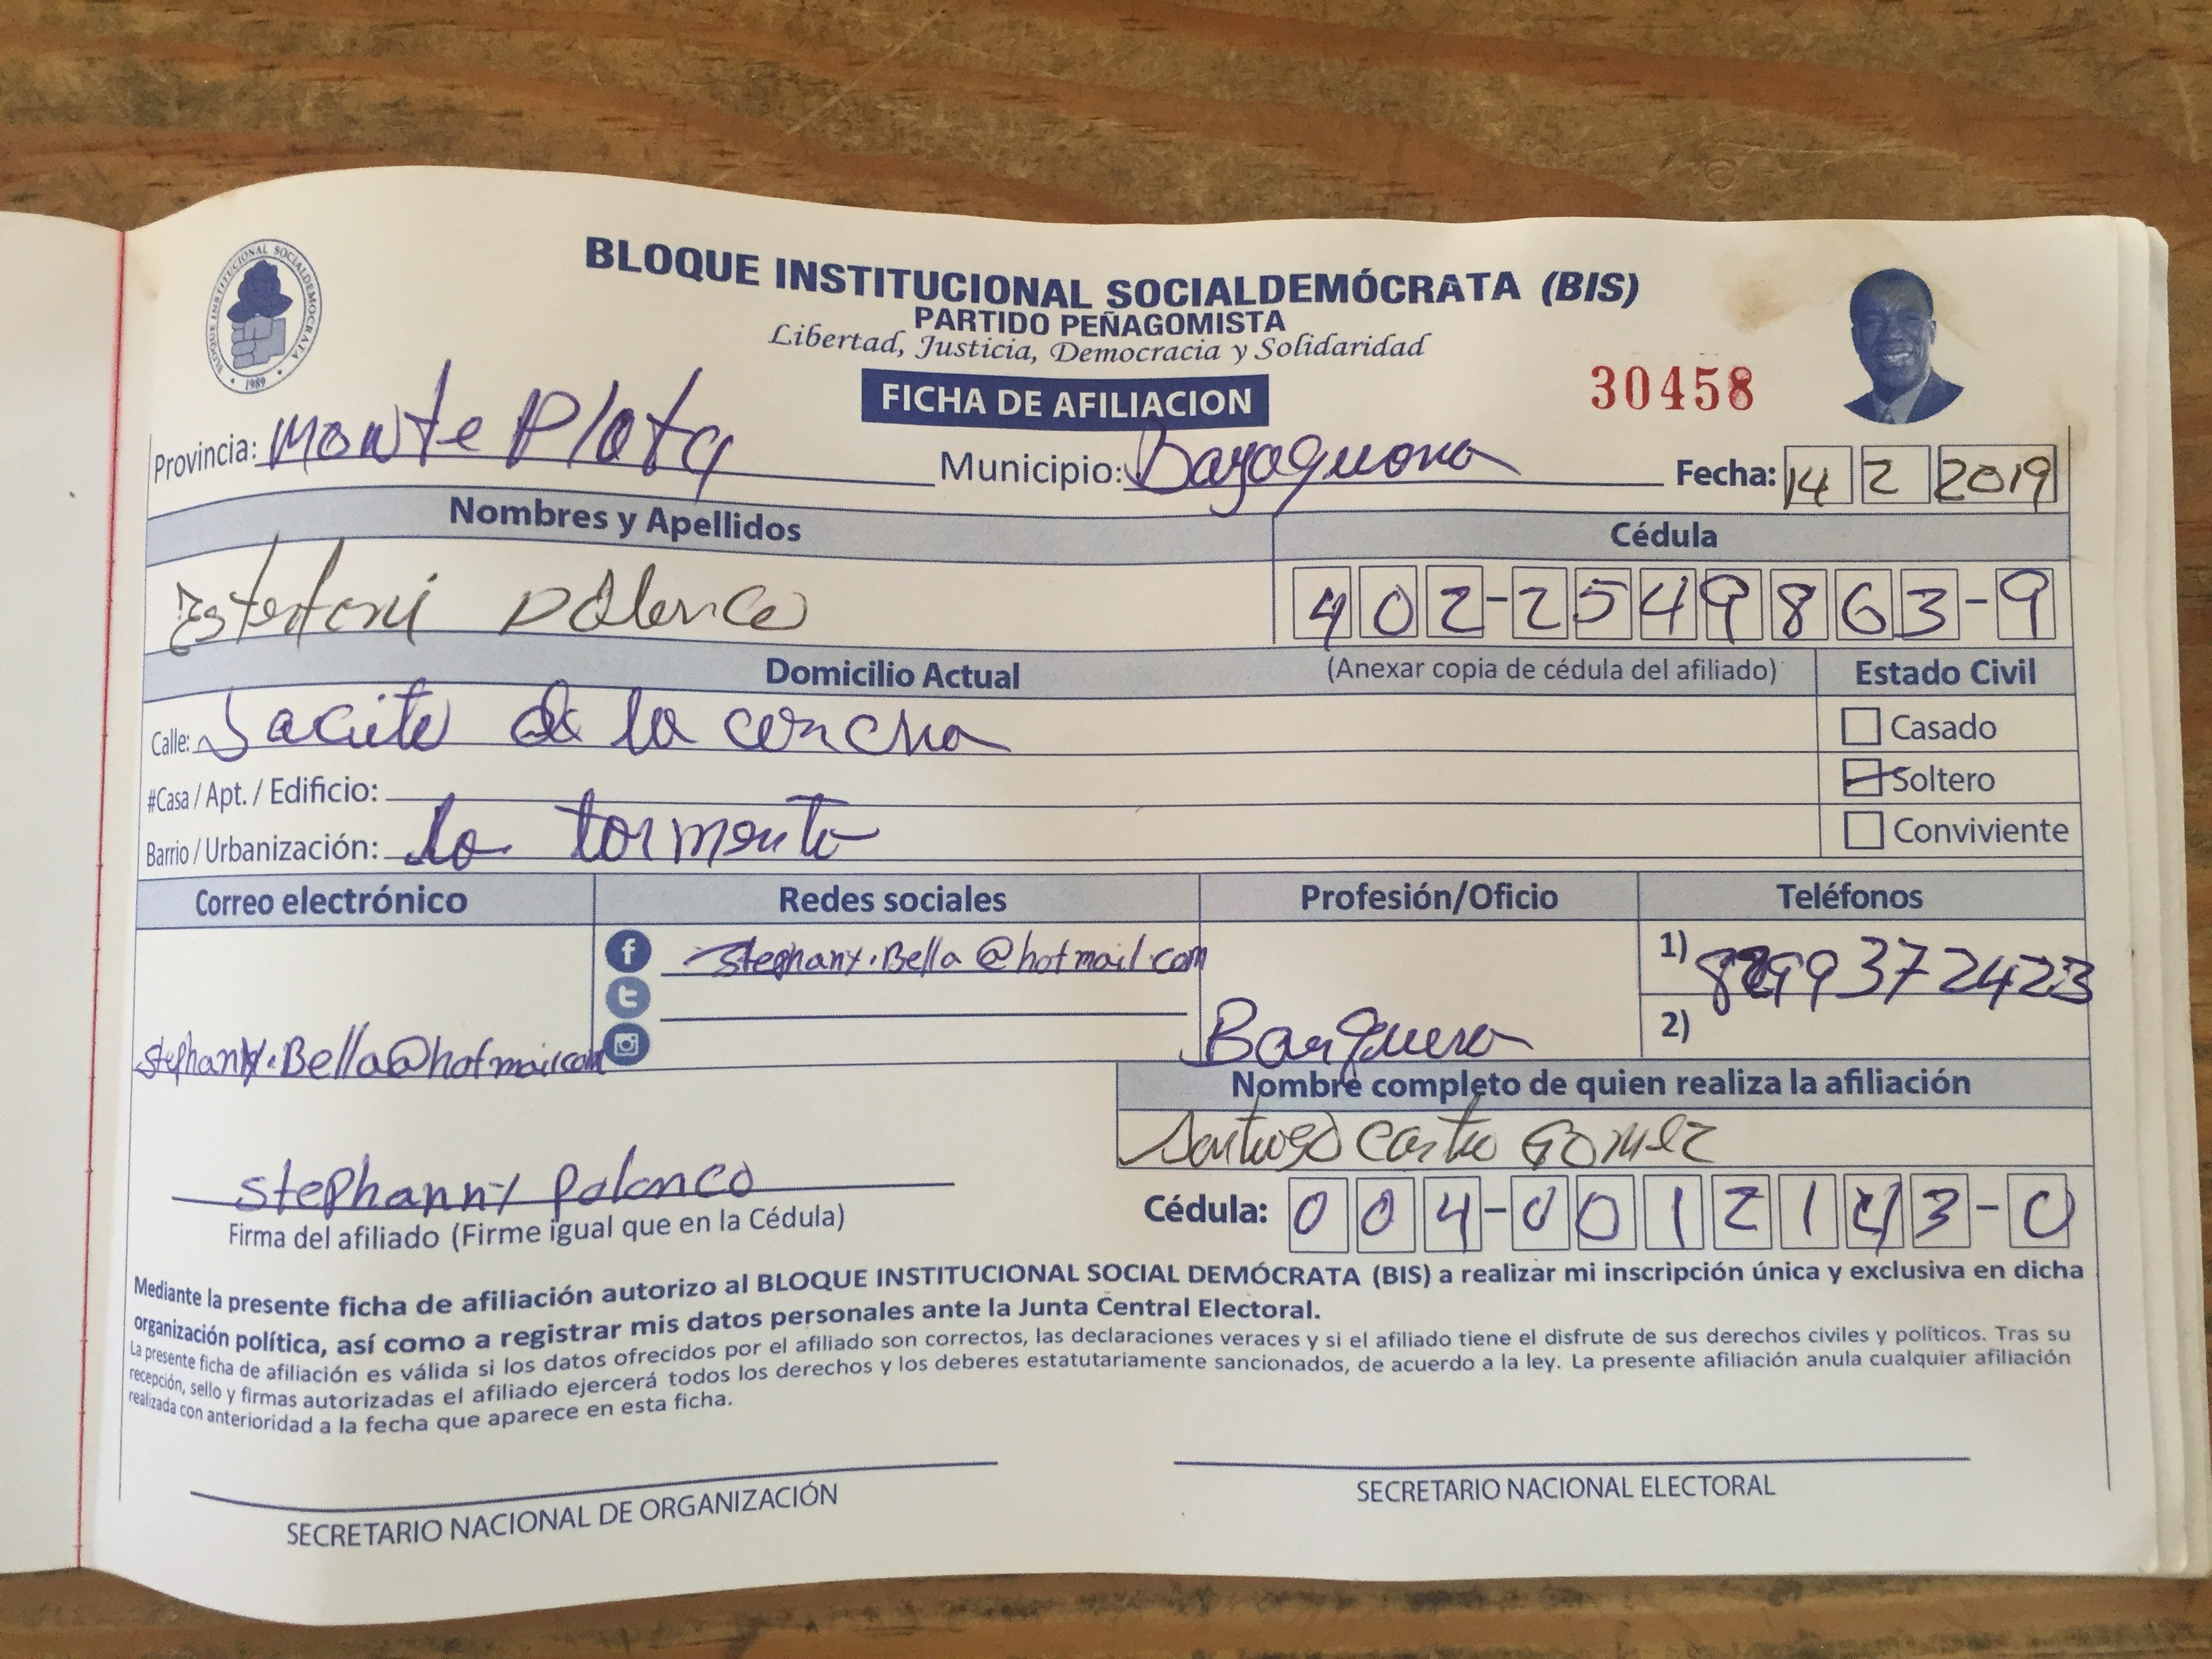 BLOQUE INSTITUCIONAL SOCIALDEMOCRATA
1989
BLOQUE INSTITUCIONAL SOCIALDEMÓCRATA (BIS)
PARTIDO PEÑAGOMISTA
Libertad, Justicia, Democracia y Solidaridad
FICHA DE AFILIACION
30458
Provincia: Monte Plata Municipio: Bayaguana Fecha: 14 2 2019
Nombres y Apellidos Cédula
Estefani Polanco 402-2549863-9
Domicilio Actual (Anexar copia de cédula del afiliado) Estado Civil
Calle: Jacito de la concha Casado
#Casa / Apt. / Edificio: Soltero
Barrio / Urbanización: La tormenta Conviviente
Correo electrónico Redes sociales Profesión/Oficio Teléfonos
stephany.Bella@hotmail.com 1) 8299372423
2)
stephany.Bella@hotmail.com Banquera
Nombre completo de quien realiza la afiliación
Santiago Castro Gomez
stephanny polanco
Firma del afiliado (Firme igual que en la Cédula) Cédula: 004-0012143-0
Mediante la presente ficha de afiliación autorizo al BLOQUE INSTITUCIONAL SOCIAL DEMÓCRATA (BIS) a realizar mi inscripción única y exclusiva en dicha
organización política, así como a registrar mis datos personales ante la Junta Central Electoral.
La presente ficha de afiliación es válida si los datos ofrecidos por el afiliado son correctos, las declaraciones veraces y si el afiliado tiene el disfrute de sus derechos civiles y políticos. Tras su
recepción, sello y firmas autorizadas el afiliado ejercerá todos los derechos y los deberes estatutariamente sancionados, de acuerdo a la ley. La presente afiliación anula cualquier afiliación
realizada con anterioridad a la fecha que aparece en esta ficha.
SECRETARIO NACIONAL DE ORGANIZACIÓN SECRETARIO NACIONAL ELECTORAL